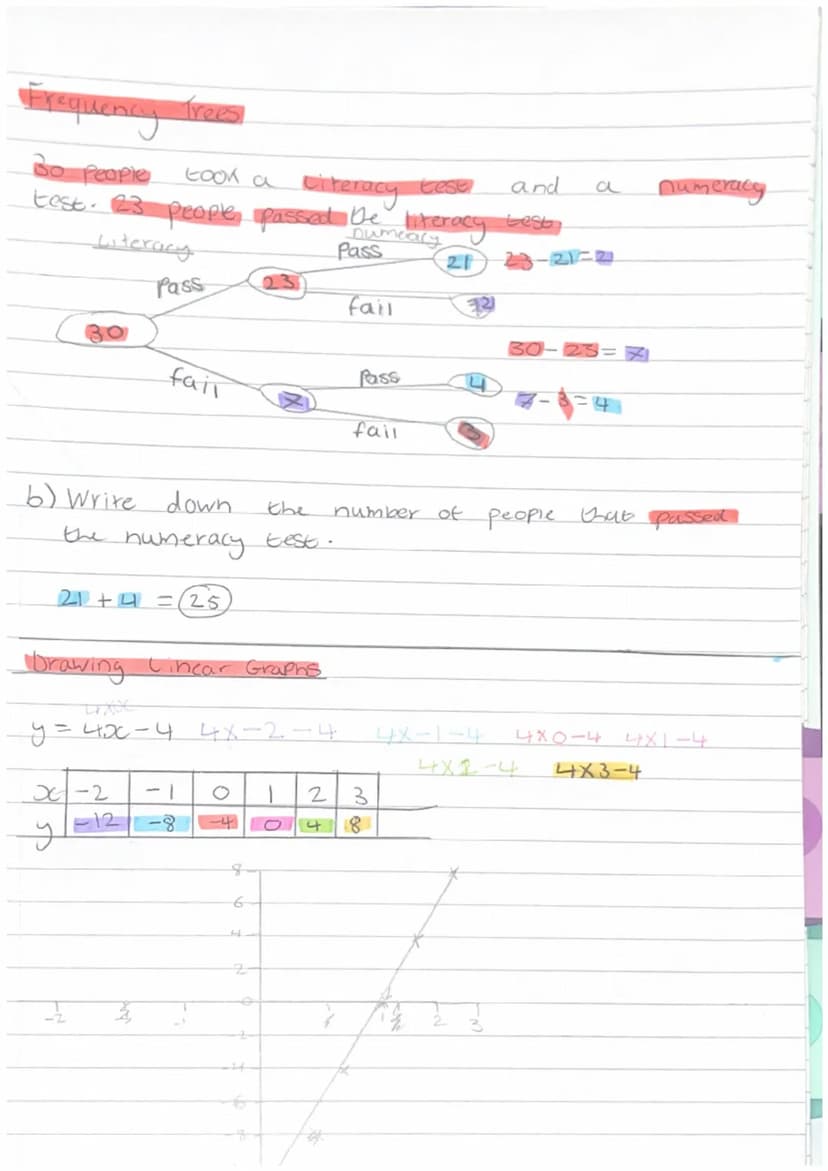 Frequency Trees
30 people took a literacy test and a numeracy
test. 23 people passed the literacy test
Literacy
numeracy
Pass 21 23-21=2
Pass 23
fail 2
30
30-23=7
fail 7
Pass 4 7-3=4
fail 3
b) Write down the number of people that passed
the numeracy test.
21 + 4 = 25
Drawing Linear Graphs
4xx
y = 4x - 4 4x-2-4 4x-1-4 4x0-4 4x1-4
4x2-4 4x3-4
x -2 -1 0 1 2 3
y -12 -8 -4 0 4 8
8
6
4
2
0
-2 -1 1 2 3
-2
-4
-6
-8